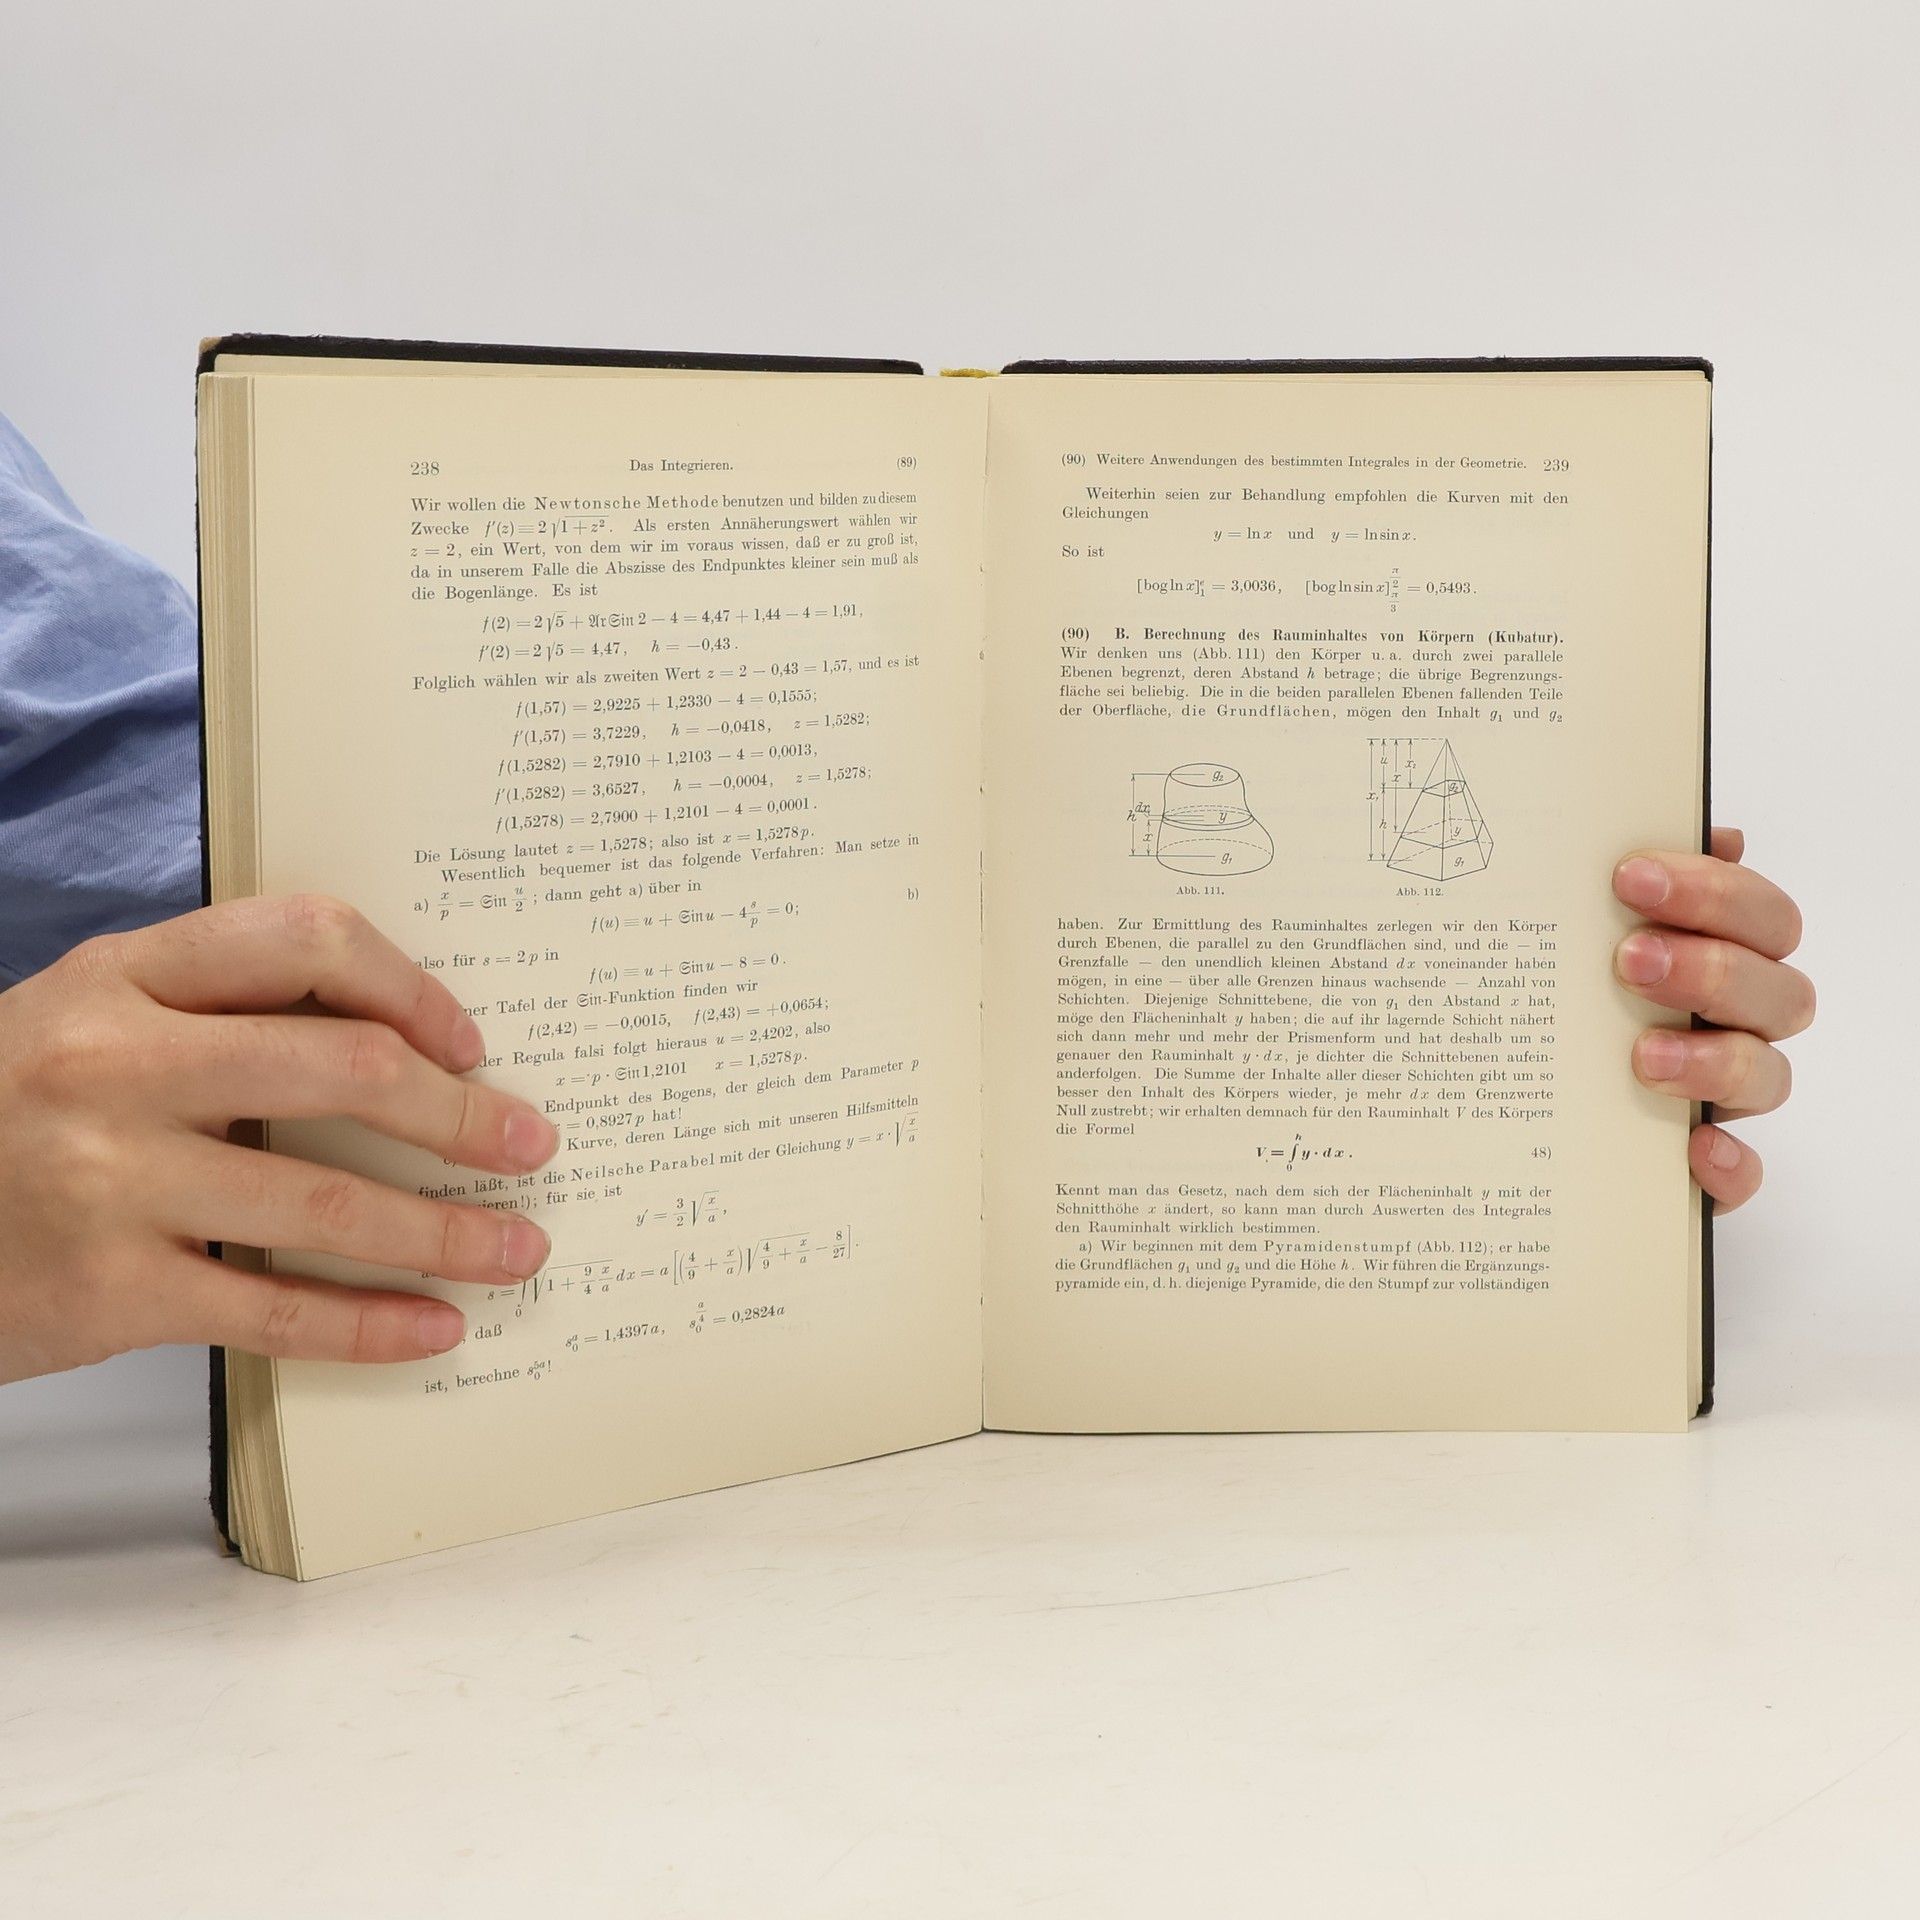 238 Das Integrieren. (89)
Wir wollen die Newtonsche Methode benutzen und bilden zu diesem
Zwecke f′(z) ≡ 2√(1 + z²). Als ersten Annäherungswert wählen wir
z = 2, ein Wert, von dem wir im voraus wissen, daß er zu groß ist,
da in unserem Falle die Abszisse des Endpunktes kleiner sein muß als
die Bogenlänge. Es ist
f(2) = 2√5 + 𝔄𝔯 𝔖𝔦𝔫 2 − 4 = 4,47 + 1,44 − 4 = 1,91,
f′(2) = 2√5 = 4,47, h = −0,43.
Folglich wählen wir als zweiten Wert z = 2 − 0,43 = 1,57, und es ist
f(1,57) = 2,9225 + 1,2330 − 4 = 0,1555;
f′(1,57) = 3,7229, h = −0,0418, z = 1,5282;
f(1,5282) = 2,7910 + 1,2103 − 4 = 0,0013,
f′(1,5282) = 3,6527, h = −0,0004, z = 1,5278;
f(1,5278) = 2,7900 + 1,2101 − 4 = 0,0001.
Die Lösung lautet z = 1,5278; also ist x = 1,5278 p.
Wesentlich bequemer ist das folgende Verfahren: Man setze in
a) x/p = 𝔖𝔦𝔫 u/2; dann geht a) über in
f(u) ≡ u + 𝔖𝔦𝔫 u − 4 s/p = 0; b)
also für s = 2 p in
f(u) ≡ u + 𝔖𝔦𝔫 u − 8 = 0.
Tafel der 𝔖𝔦𝔫-Funktion finden wir
f(2,42) = −0,0015, f(2,43) = +0,0654;
der Regula falsi folgt hieraus u = 2,4202, also
x = p · 𝔖𝔦𝔫 1,2101 x = 1,5278 p.
Endpunkt des Bogens, der gleich dem Parameter p
= 0,8927 p hat!
Kurve, deren Länge sich mit unseren Hilfsmitteln
finden läßt, ist die Neilsche Parabel mit der Gleichung y = x · √(x/a)
für sie ist
y′ = 3/2 √(x/a),
s = ∫₀ √(1 + 9/4 x/a) dx = a [(4/9 + x/a) √(4/9 + x/a) − 8/27].
, daß
s₀ᵃ = 1,4397 a, s₀^(a/4) = 0,2824 a
ist, berechne s₀⁵ᵃ!
(90) Weitere Anwendungen des bestimmten Integrales in der Geometrie. 239
Weiterhin seien zur Behandlung empfohlen die Kurven mit den
Gleichungen
y = ln x und y = ln sin x.
So ist
[bog ln x]₁ᵉ = 3,0036, [bog ln sin x]_(π/3)^(π/2) = 0,5493.
(90) B. Berechnung des Rauminhaltes von Körpern (Kubatur).
Wir denken uns (Abb. 111) den Körper u. a. durch zwei parallele
Ebenen begrenzt, deren Abstand h betrage; die übrige Begrenzungs-
fläche sei beliebig. Die in die beiden parallelen Ebenen fallenden Teile
der Oberfläche, die Grundflächen, mögen den Inhalt g₁ und g₂
g₂
dx
h
y
x
g₁
Abb. 111.
u
x₂
x
x₁
h
g₂
y
g₁
Abb. 112.
haben. Zur Ermittlung des Rauminhaltes zerlegen wir den Körper
durch Ebenen, die parallel zu den Grundflächen sind, und die — im
Grenzfalle — den unendlich kleinen Abstand dx voneinander haben
mögen, in eine — über alle Grenzen hinaus wachsende — Anzahl von
Schichten. Diejenige Schnittebene, die von g₁ den Abstand x hat,
möge den Flächeninhalt y haben; die auf ihr lagernde Schicht nähert
sich dann mehr und mehr der Prismenform und hat deshalb um so
genauer den Rauminhalt y · dx, je dichter die Schnittebenen aufein-
anderfolgen. Die Summe der Inhalte aller dieser Schichten gibt um so
besser den Inhalt des Körpers wieder, je mehr dx dem Grenzwerte
Null zustrebt; wir erhalten demnach für den Rauminhalt V des Körpers
die Formel
V = ∫₀ʰ y · dx. 48)
Kennt man das Gesetz, nach dem sich der Flächeninhalt y mit der
Schnitthöhe x ändert, so kann man durch Auswerten des Integrales
den Rauminhalt wirklich bestimmen.
a) Wir beginnen mit dem Pyramidenstumpf (Abb. 112); er habe
die Grundflächen g₁ und g₂ und die Höhe h. Wir führen die Ergänzungs-
pyramide ein, d. h. diejenige Pyramide, die den Stumpf zur vollständigen